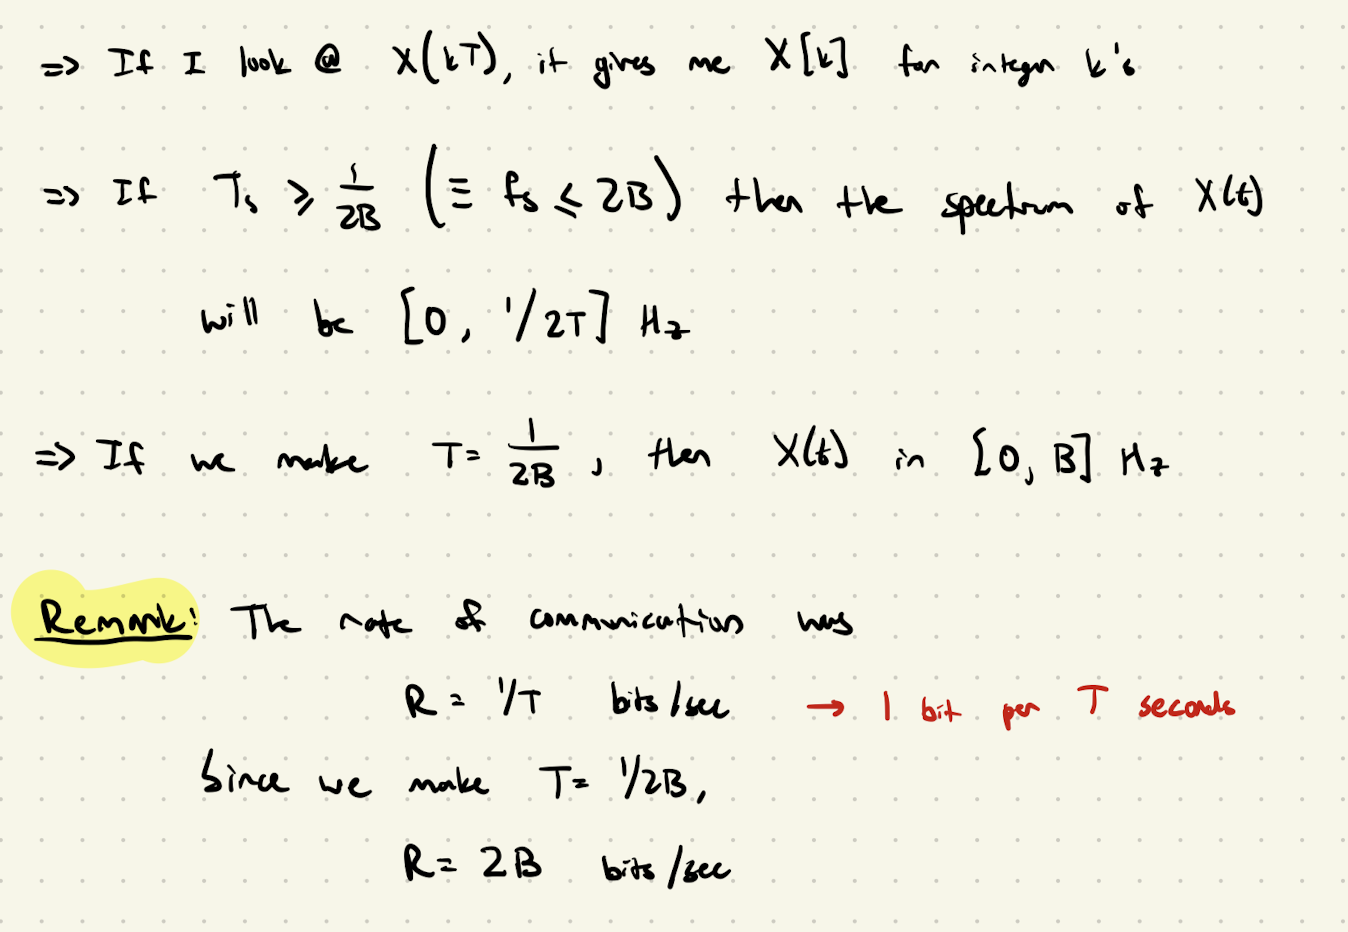 => If I look @ X(kT), it gives me X[k] for integer k's
=> If Ts ⩾ 1/2B (≡ fs ⩽ 2B) then the spectrum of X(t)
will be [0, 1/2T] Hz
=> If we make T= 1/2B, then X(t) in [0, B] Hz
Remark: The rate of communication was
R = 1/T bits/sec → 1 bit per T seconds
Since we make T= 1/2B,
R= 2B bits/sec